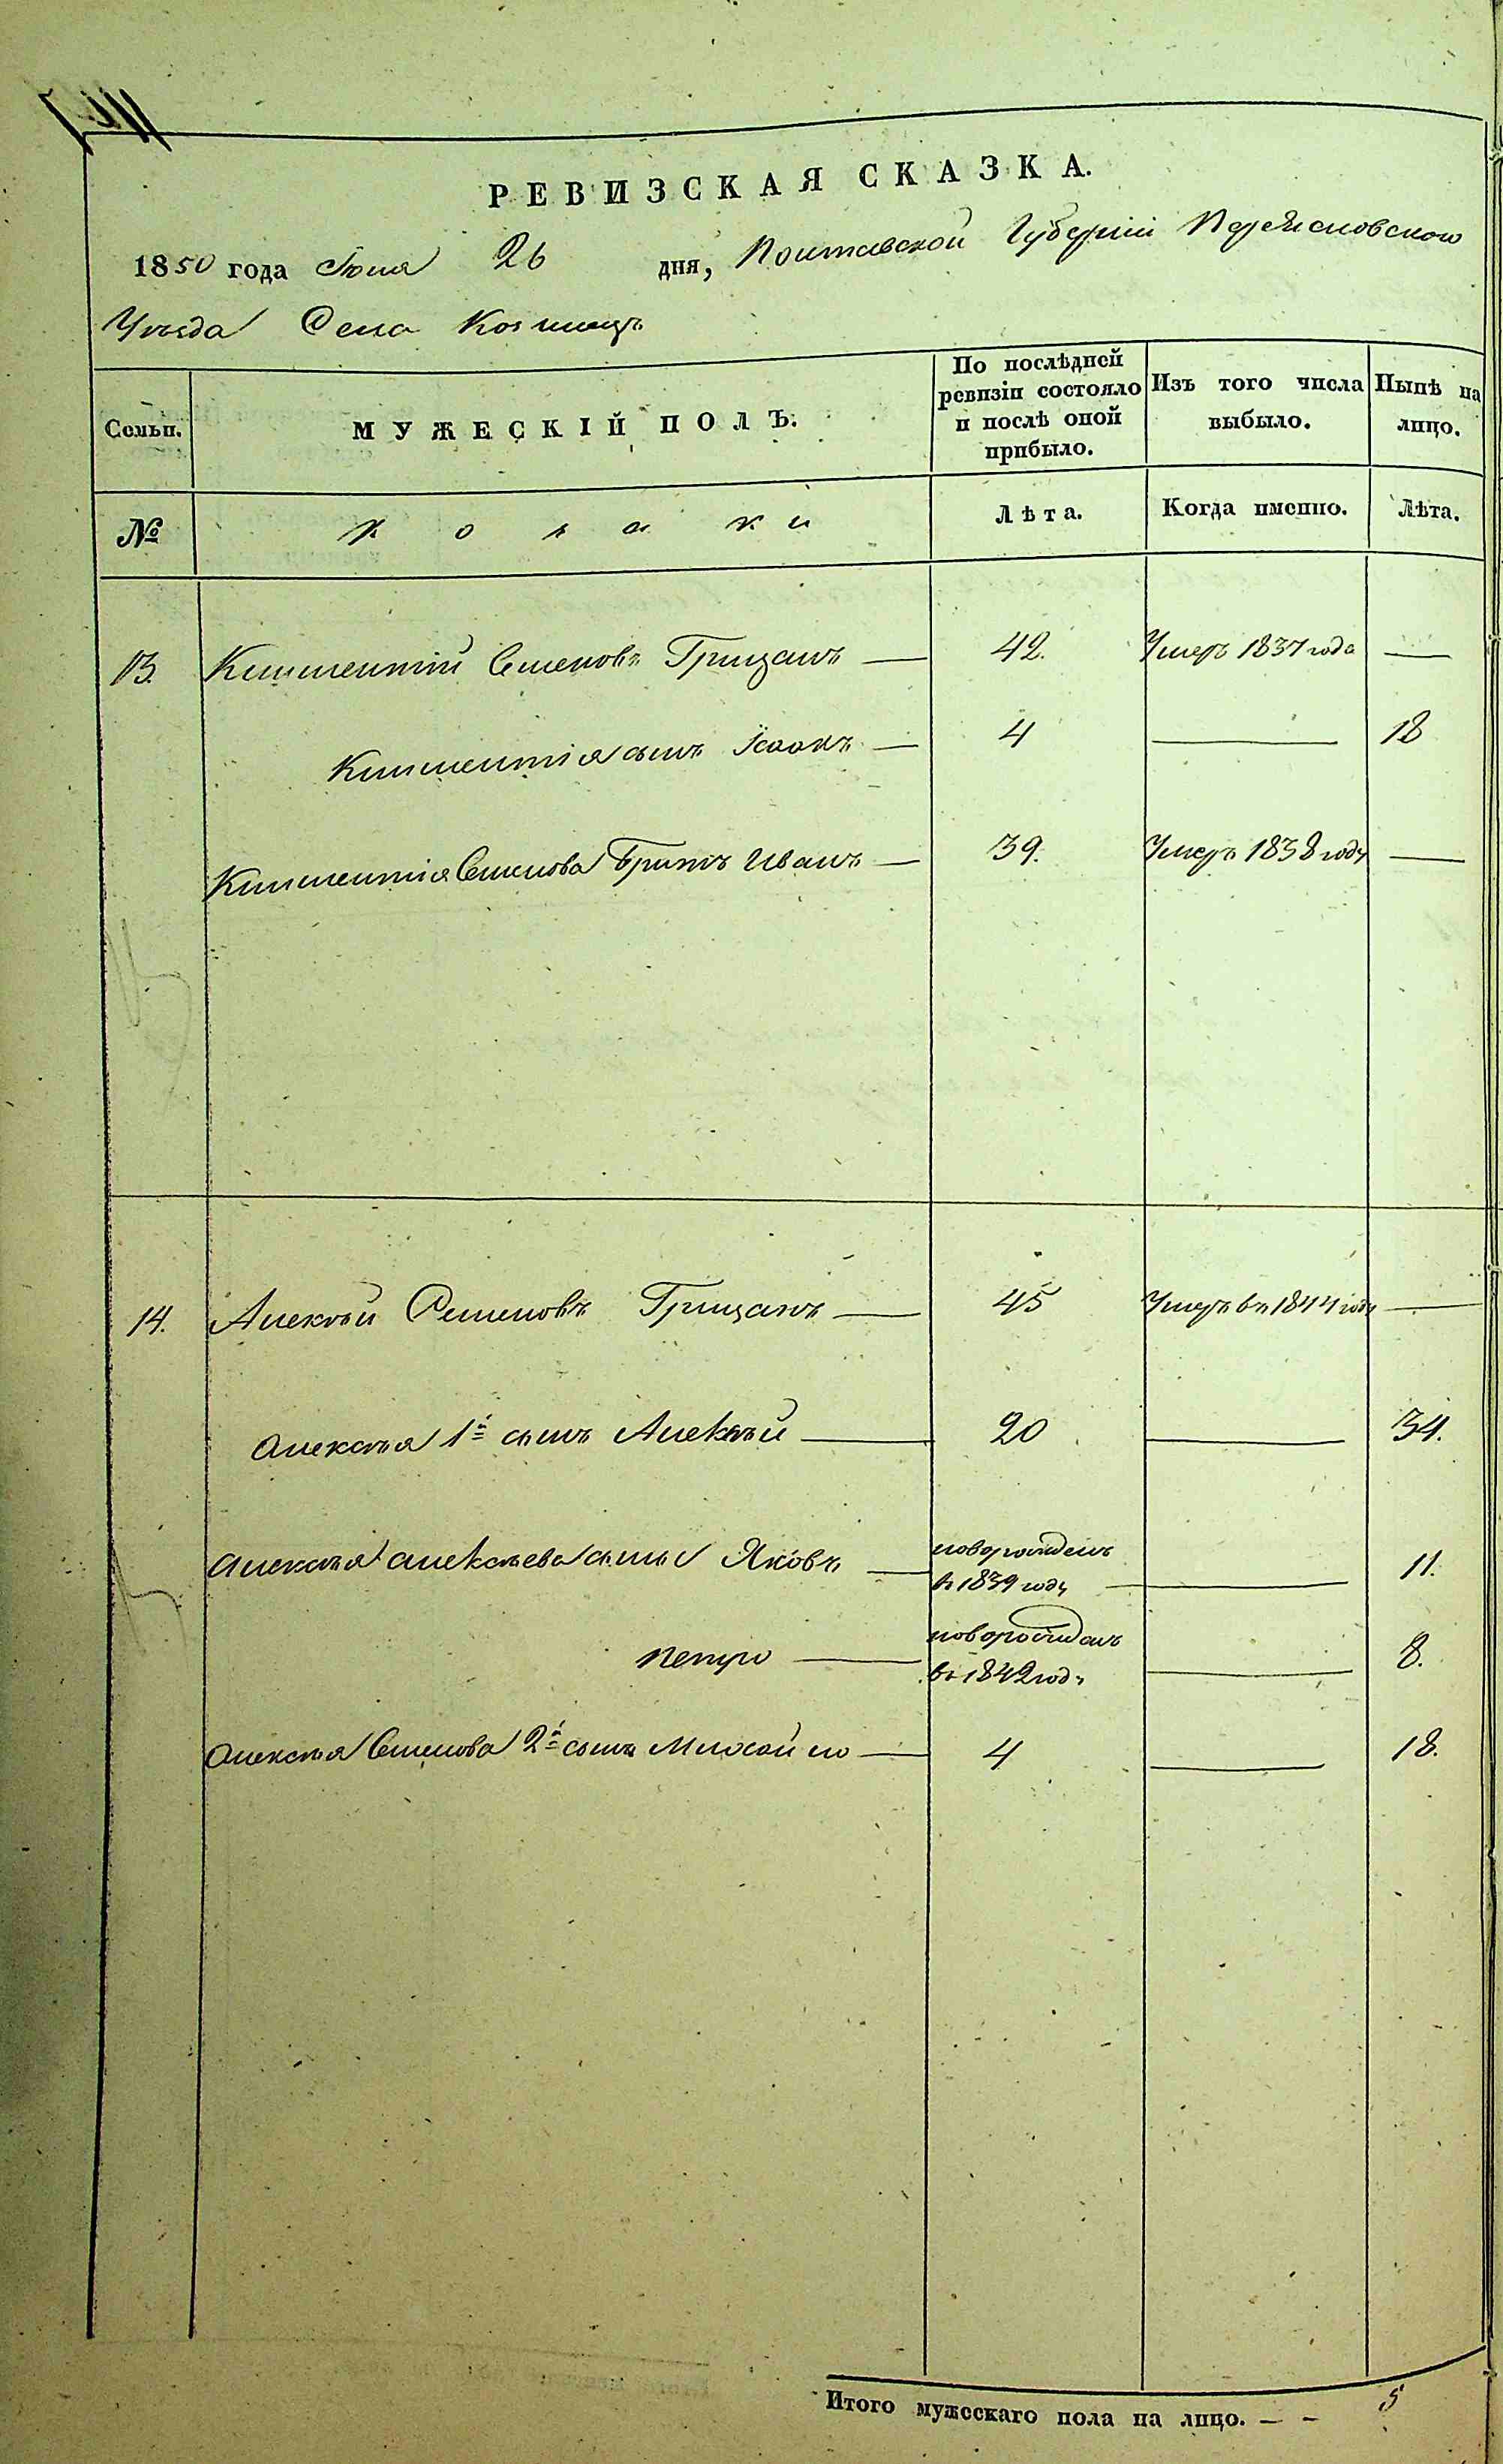 РЕВИЗСКАЯ СКАЗКА.
1850 года Іюня 26 дня, Полтавской Губерніи Переясловского
Уѣзда Села
Семьи. МУЖЕСКІЙ ПОЛЪ. По послѣдней ревизіи состояло и послѣ оной прибыло. Изъ того числа выбыло. Нынѣ на лицо.
№ козаки Лѣта. Когда именно. Лѣта.
13. Климентій Семеновъ Грицанъ — 42. Умеръ 1837 года —
Климентія сынъ Ісаакъ — 4 — 18
Климентія Семенова братъ Иванъ — 39. Умеръ 1838 году —
14. Алексѣй Семеновъ Грицанъ — 45 Умеръ въ 1844 году —
Алексѣя 1й сынъ Алексѣй — 20 — 34.
Алексѣя Алексѣева сыны Яковъ — новорожденъ
в 1839 году — 11.
Петро — новорожденъ
въ 1842 году — 8.
Алексѣя Семенова 2й сынъ Михайло — 4 — 18.
Итого мужескаго пола на лицо. — - 5